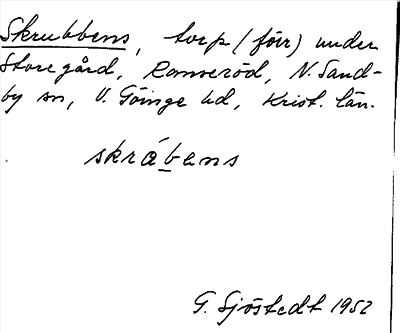 Skrubbens, torp (förr) under
Storegård, Romeröd, N. Sand-
by sn, V. Göinge hd, Krist. län.
skrábens
G. Sjöstedt 1952